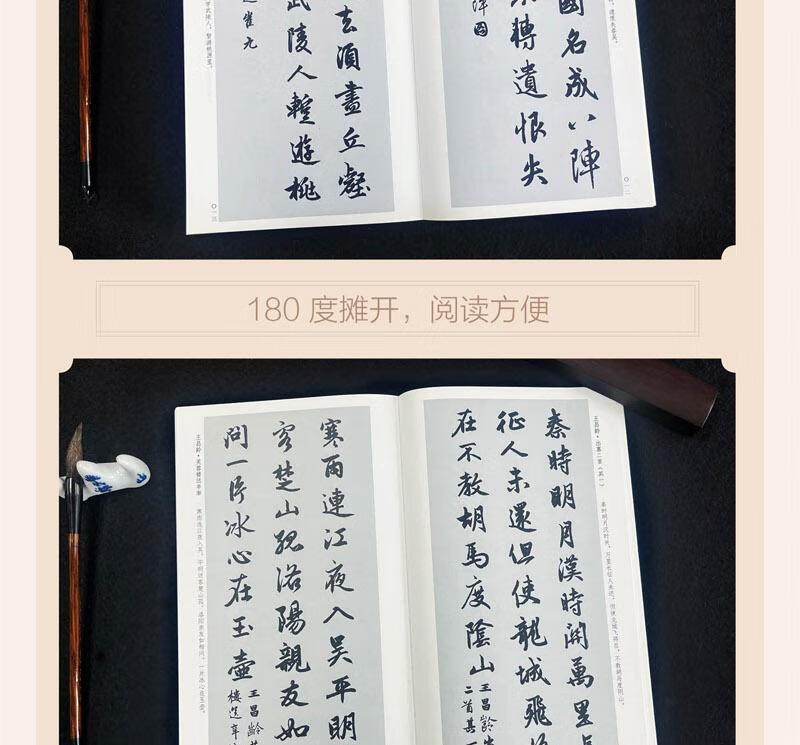 國名成八陣
轉遺恨失
去須盡丘壑
武陵人暫遊桃
崔九
180 度摊开，阅读方便
王昌龄·出塞二首（其一）
秦時明月漢時關萬里
征人未還但使龍城飛
在不教胡馬度陰山
王昌齡
二首其
秦时明月汉时关，万里长征人未还。但使龙城飞将在，不教胡马度阴山。
王昌龄·芙蓉楼送辛渐
寒雨連江夜入吳平明
客楚山孤洛陽親友如
問一片冰心在玉壺
王昌齡
樓送辛
寒雨连江夜入吴，平明送客楚山孤。洛阳亲友如相问，一片冰心在玉壶。